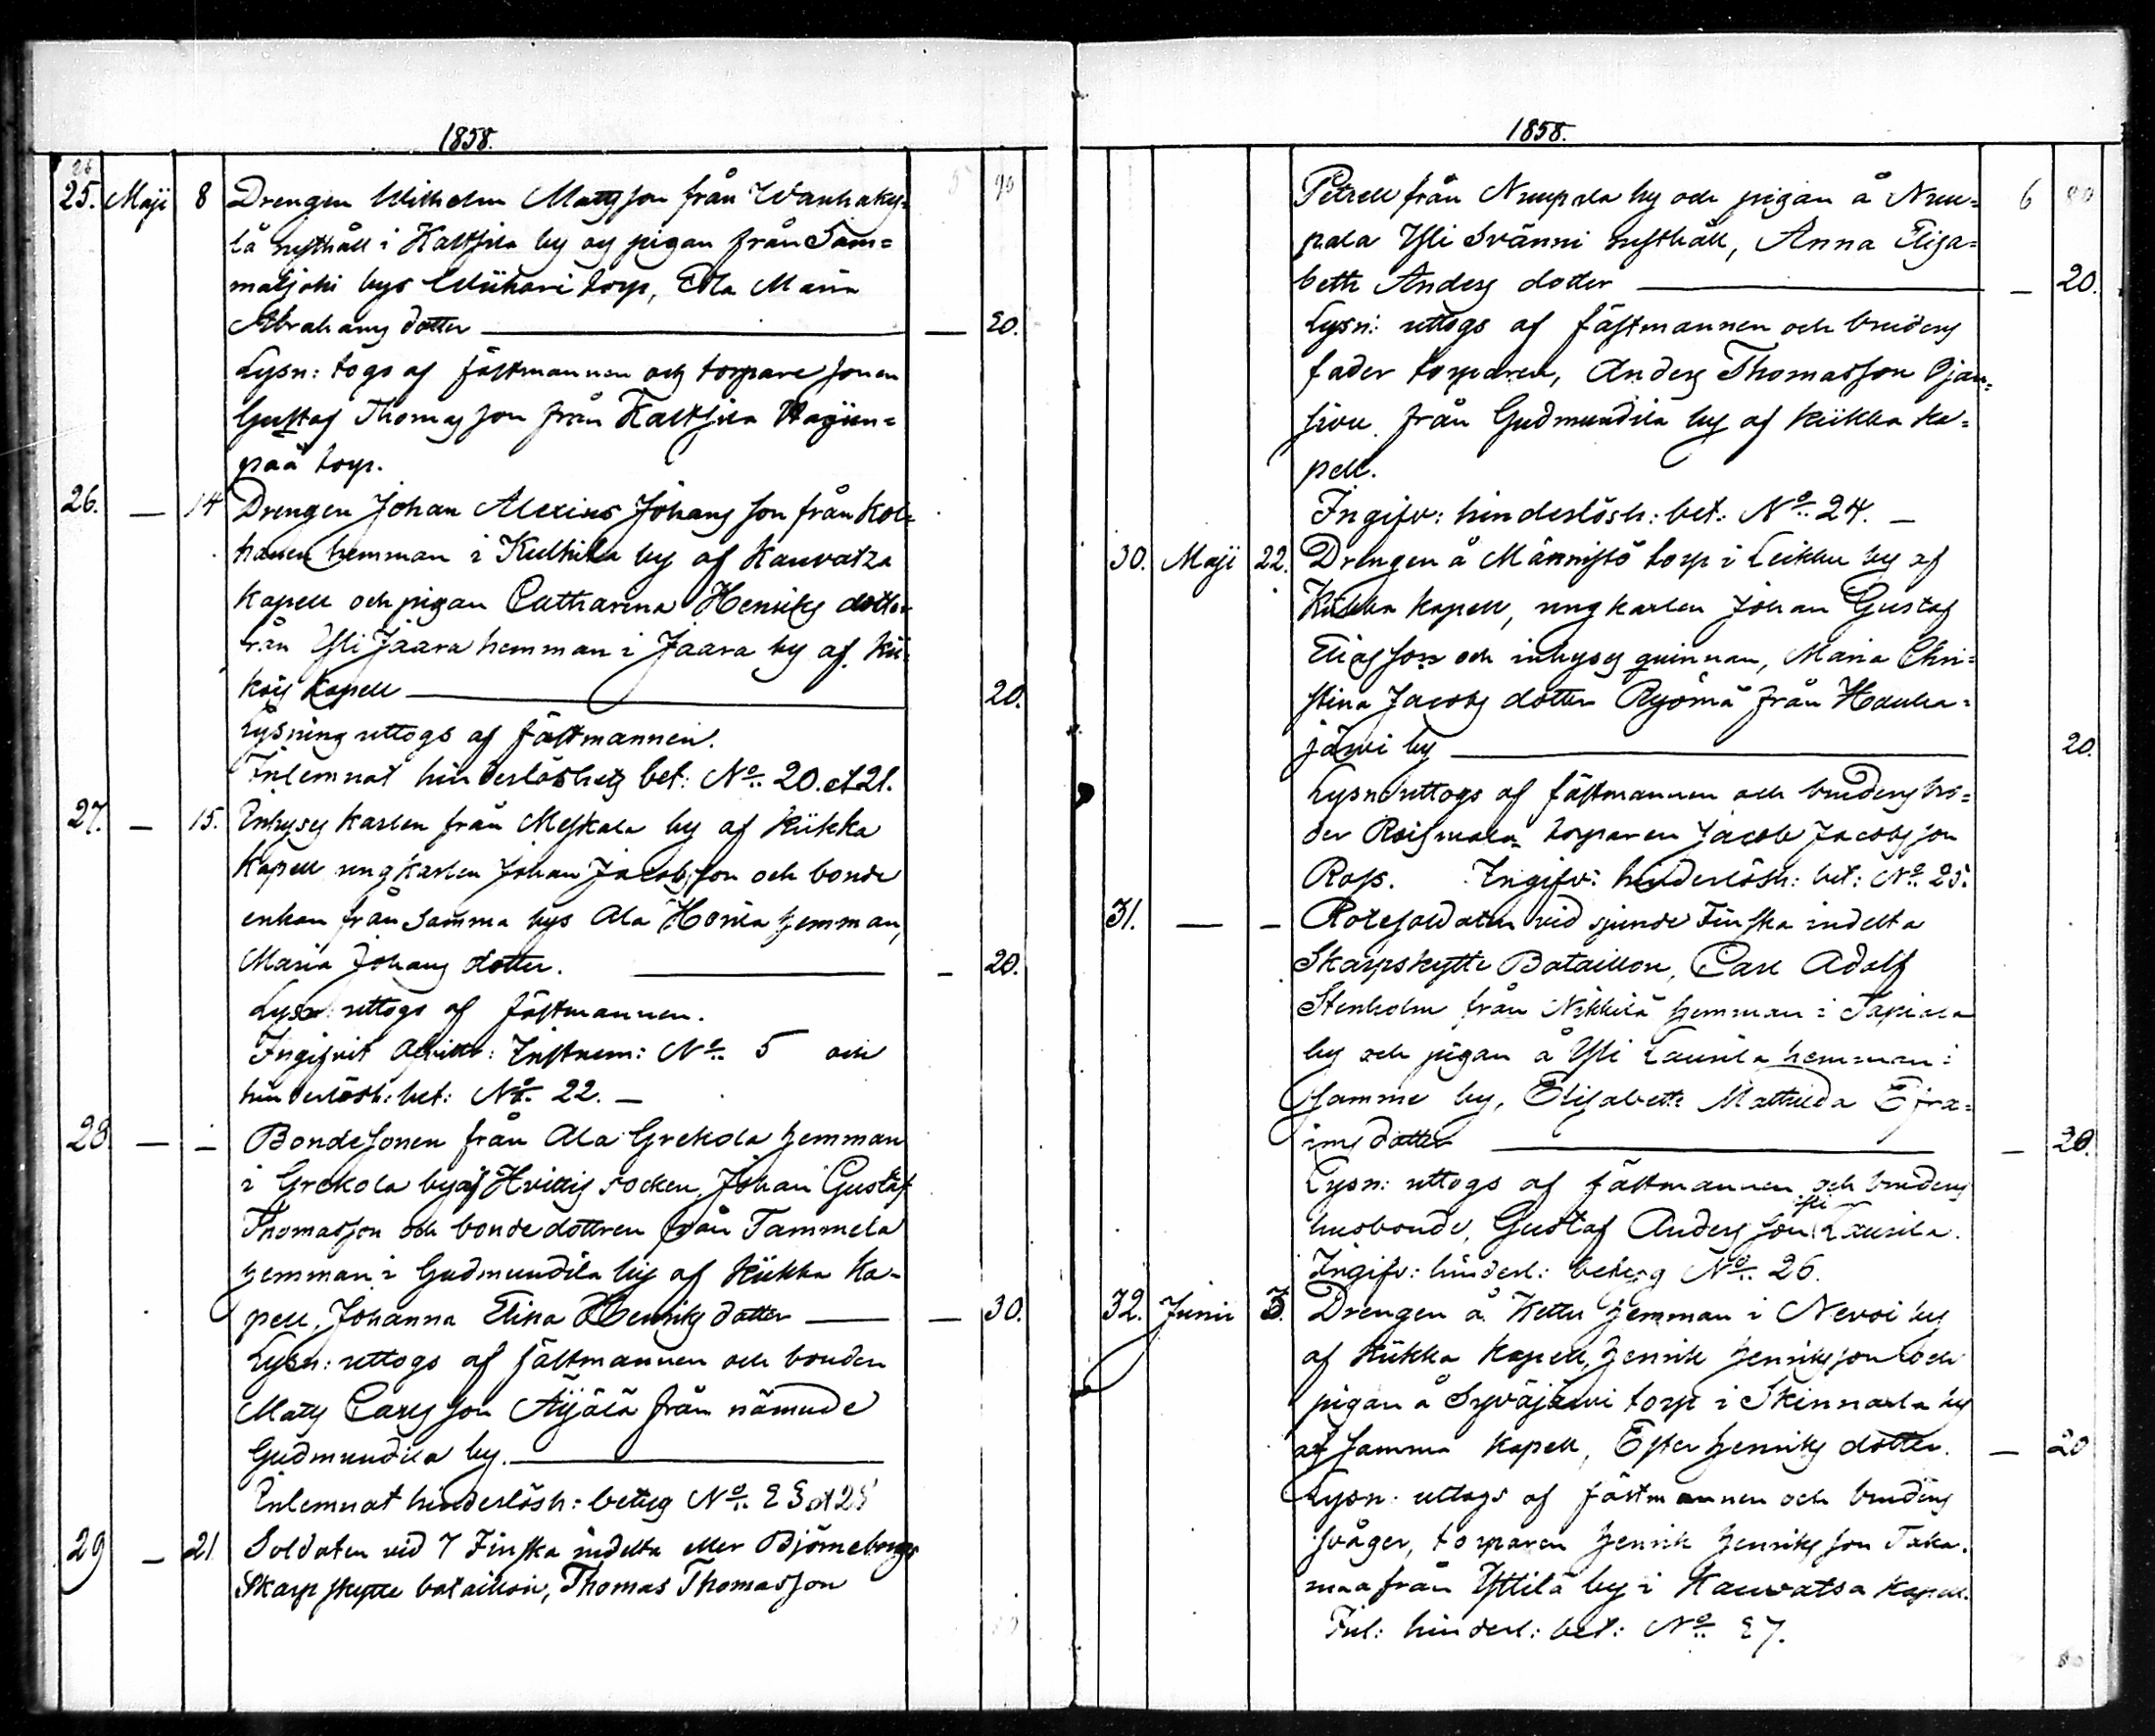 1858.
25. Maji 8 Drengen Wilhelm Matsson från Wanhaky=
lä rusthåll i Kaltsila by og pigan från Sam=
maljoki bys Wiikari torp, Eva Maria
Abrahams dotter — 20.
Lysn: togs af fästmannen och torpare sonen
Gustaf Thomasson från Kaltsila
pää torp.
26. — 14 Drengen Johan Alexius Johansson från Kol=
hanen hemman i Kulkila by af Kauvatza
Kapell och pigan Catharina Henriks dotter
från Yli Jaara hemman i Jaara by af Kii=
kois Kapell — 20.
Lysning uttogs af fästmannen.
Inlemnat hinderslöshets bet: No. 20. et 21.
27. — 15. Inhyses karlen från Meskala by af Kiikka
Kapell ungkarlen Johan Jacobsson och bonde
enkan från samma bys Ala Honia hemman,
Maria Johans dotter. — 20.
Lysn: uttogs af fästmannen.
Ingifvit Afvittr: Instrum: No. 5 och
hinderslösh: bet: No. 22. —
28 — — Bondesonen från Ala Grekola hemman
i Grekola by af Hvittis socken Johan Gustaf
Thomasson och bondedottren från Tammela
hemman i Gudmundila by af Kiikka Ka-
pell, Johanna Elina Henriks dotter — 30.
Lysn: uttogs af fästmannen och bonden
Mats Carlsson Äijälä från nämnde
Gudmundila by.
Inlemnat hinderslösh: betyg No. 23 et 25
29 — 21 Soldaten vid 7 Finska indelta eller Björneborgs
Skarpskytte bataillon, Thomas Thomasson
1858.
Petrell från Nuupala by och pigan å Nuu= 6
pala Yli Svänni rusthåll, Anna Elisa=
beth Anders dotter — 20.
Lysn: uttogs af fästmannen och brudens
fader torparen, Anders Thomasson Ojan=
sivu från Gudmundila by af Kiikka Ka=
pell.
Ingifv: hinderslösh: bet: No. 24. —
30. Maji 22. Drengen å Männistö torp i Leikku by af
Kiikka kapell, ungkarlen Johan Gustaf
Eliasson och inhyses quinnan, Maria Chri=
stina Jacobs dotter Ryömä från Hauka=
järvi by — 20.
Lysn: uttogs af fästmannen och brudens bro=
der Roismala torparen Jacob Jacobsson
Rops. Ingifv: hinderslösh: bet: No. 25.
31. — — Rotesoldaten vid sjunde Finska indelta
Skarpskytte Bataillon, Carl Adolf
Stenholm från Nikkilä hemman i Tapiala
by och pigan å Yli Laurila hemman i
samma by, Elisabeth Mathilda Efra=
ims dotter — 20.
Lysn: uttogs af fästmannen och brudens
husbonde, Gustaf Andersson Yli Laurila.
Ingifv: hinderl: betyg No. 26.
32. Junii 3. Drengen å Kettu hemman i Nevoi by
af Kiikka Kapell, Henrik Henriksson och
pigan å Syväjärvi torp i Skinnarla by
af samma Kapell, Ester Henriks dotter. — 20
Lysn: uttogs af fästmannen och brudens
svåger, torparen Henrik Henriksson Taka=
maa från Yttilä by i Kauvatsa kapell.
Inl: hinderl: bet: No. 27.